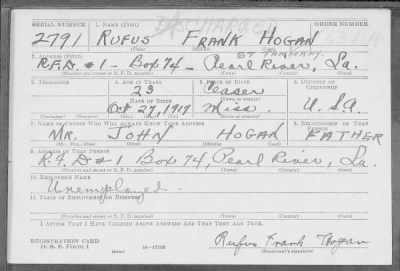 SERIAL NUMBER 1. NAME (Print) ORDER NUMBER
DISCHARGED
2791 RUFUS FRANK HOGAN
(First) (Middle) (Last)
2. ADDRESS (Print) ST TAMMANY.
R.F.D #1 - Box 74 - Pearl River, La.
(Number and street or R. F. D. number) (Town) (County) (State)
3. TELEPHONE 4. AGE IN YEARS 5. PLACE OF BIRTH 6. COUNTRY OF CITIZENSHIP
23
DATE OF BIRTH (Town or county)
Oct 27, 1917 Miss. U.S.A
(Mo.) (Day) (Yr.) (State or country)
7. NAME OF PERSON WHO WILL ALWAYS KNOW YOUR ADDRESS 8. RELATIONSHIP OF THAT PERSON
MR. JOHN HOGAN FATHER
(Mr., Mrs., Miss) (First) (Middle) (Last)
9. ADDRESS OF THAT PERSON
R.F.D #1 Box 74, Pearl River, La.
(Number and street or R. F. D. number) (Town) (County) (State)
10. EMPLOYER'S NAME
Unemployed -
11. PLACE OF EMPLOYMENT OR BUSINESS
(Number and street or R. F. D. number) (Town) (County) (State)
I AFFIRM THAT I HAVE VERIFIED ABOVE ANSWERS AND THAT THEY ARE TRUE.
REGISTRATION CARD
D. S. S. Form 1 (over) Rufus Frank Hogan
(Registrant's signature)